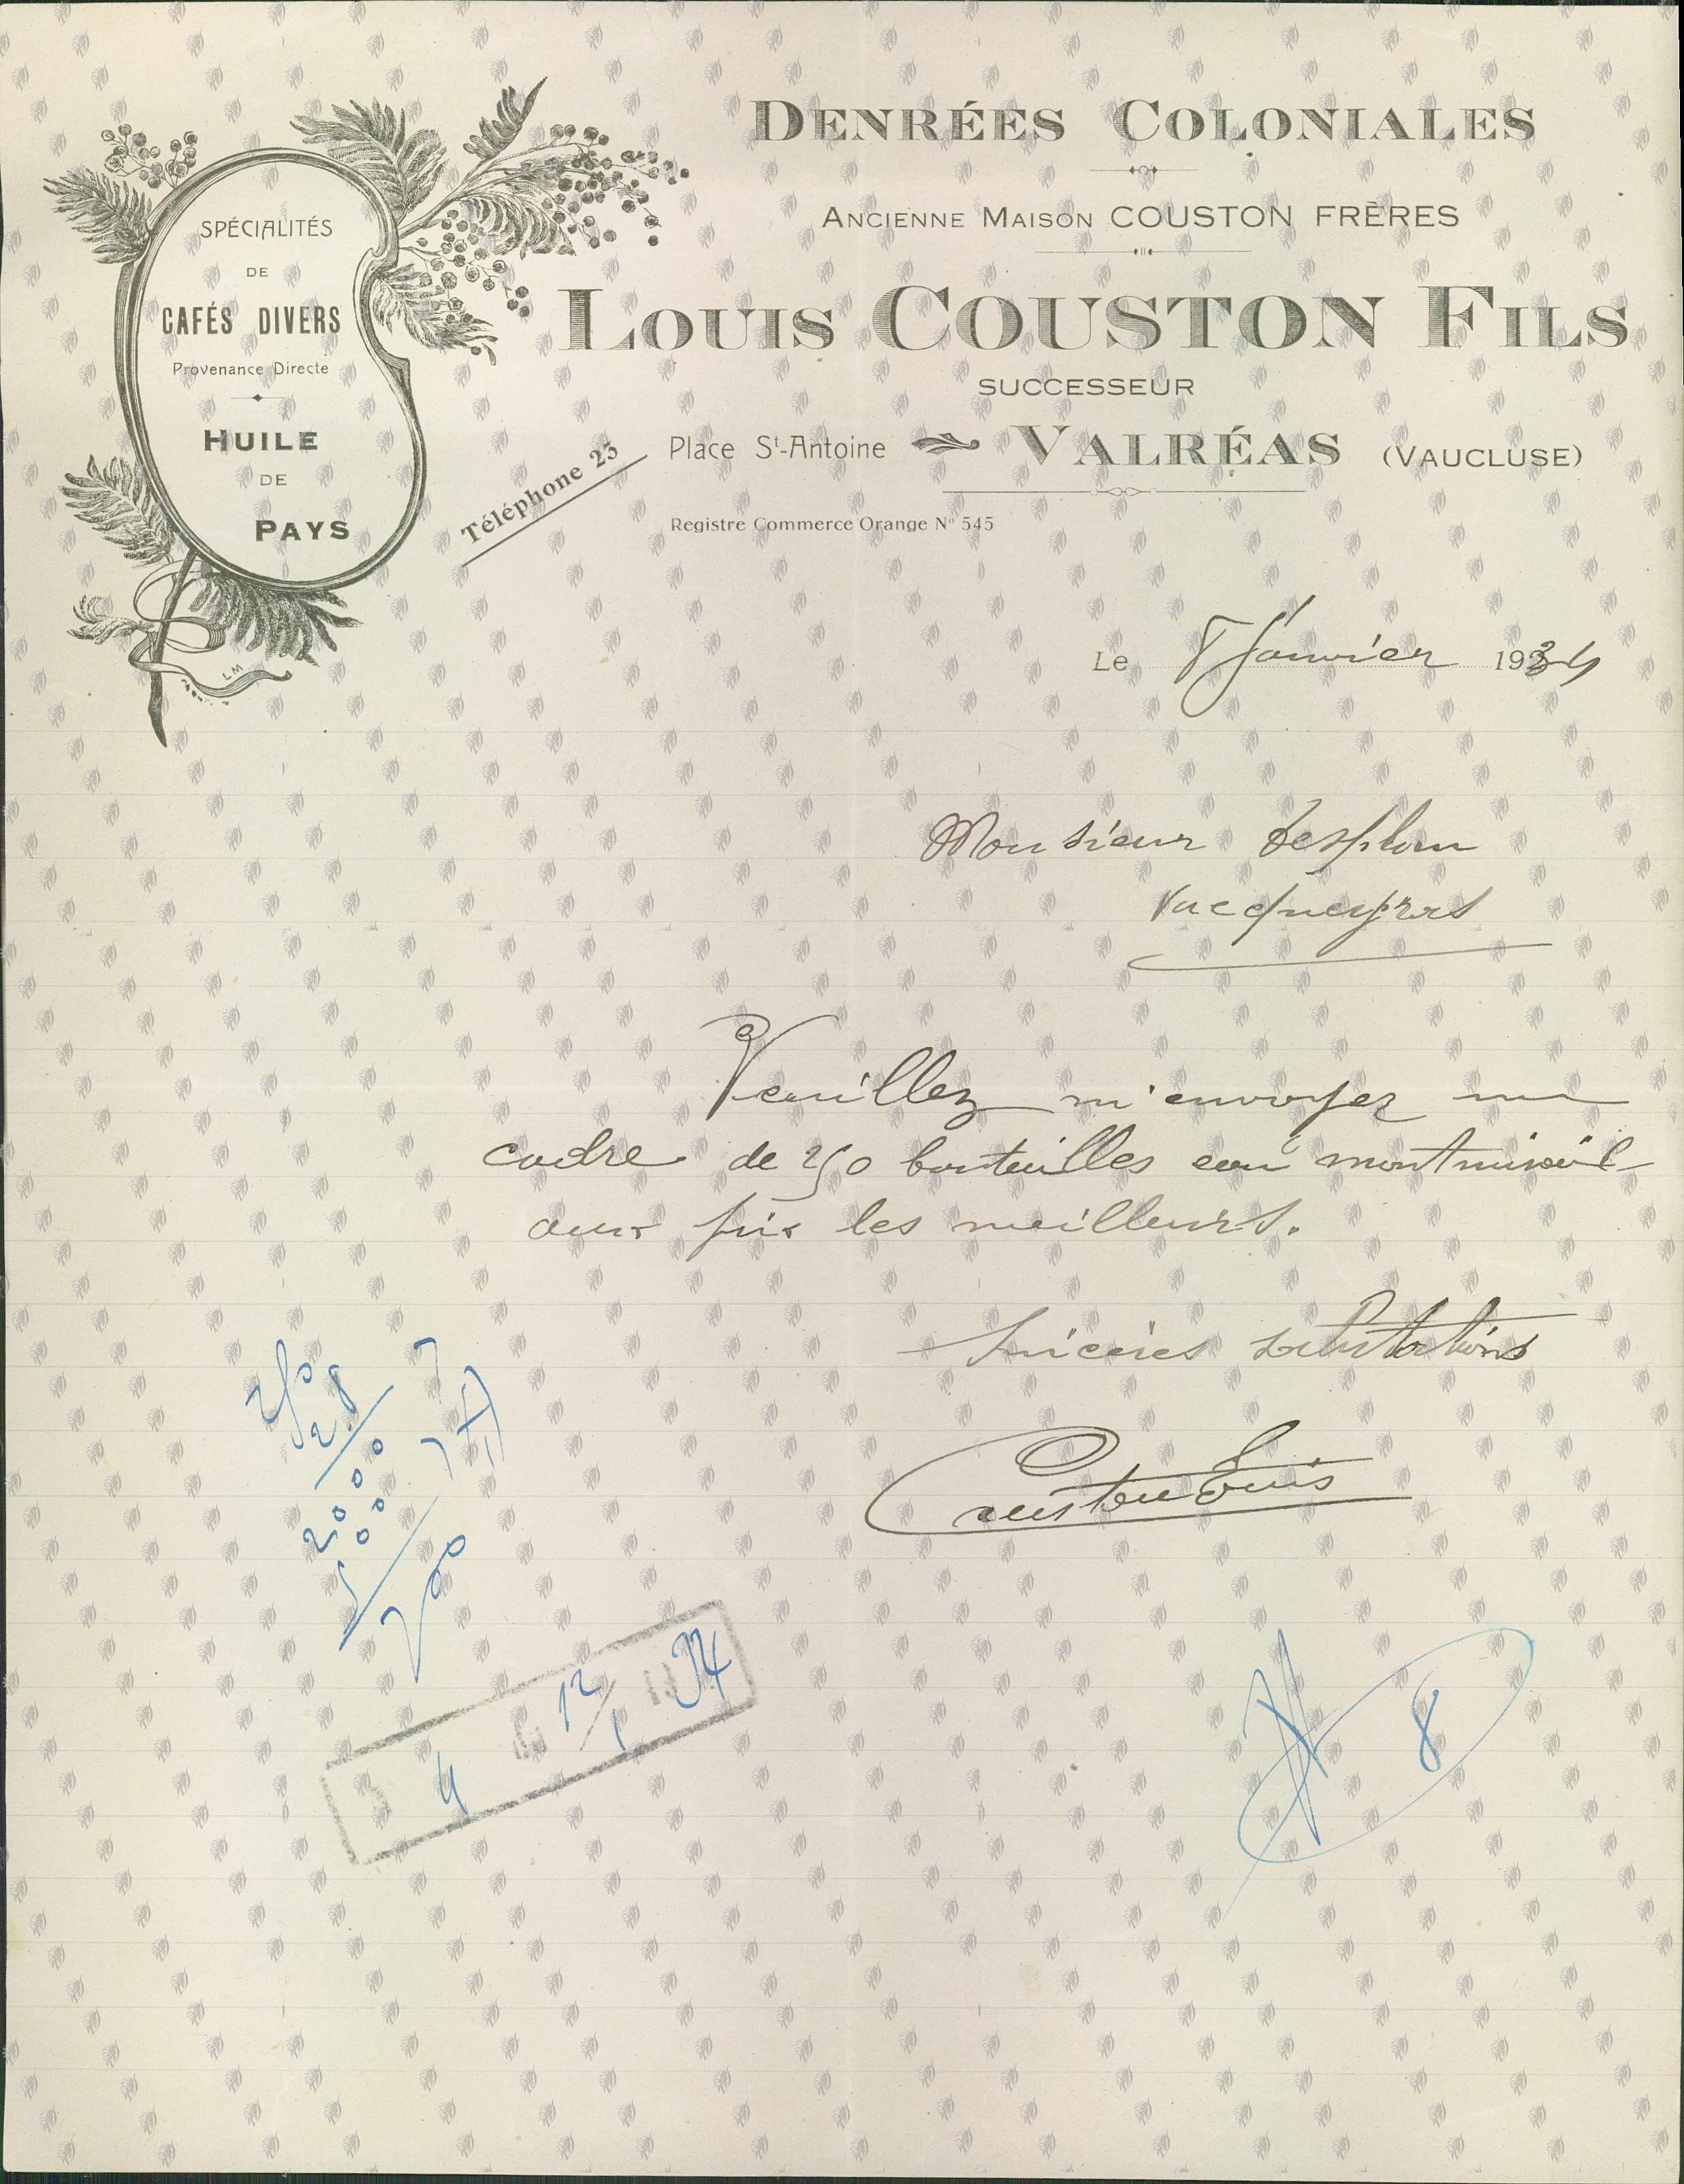 DENRÉES COLONIALES
ANCIENNE MAISON COUSTON FRÈRES
LOUIS COUSTON FILS
SUCCESSEUR
Place St-Antoine VALRÉAS (VAUCLUSE)
Téléphone 23
Registre Commerce Orange No 545
SPÉCIALITÉS
DE
CAFÉS DIVERS
Provenance Directe
HUILE
DE
PAYS
L M
Le 8 Janvier 1934
Monsieur Desplan
Vacqueyras
Veuillez m'envoyer un
cadre de 250 bouteilles eau montmirail
aux prix les meilleurs.
Sincères salutations
Couston Louis
250
28
2000
500
700
4 12/1 34
8